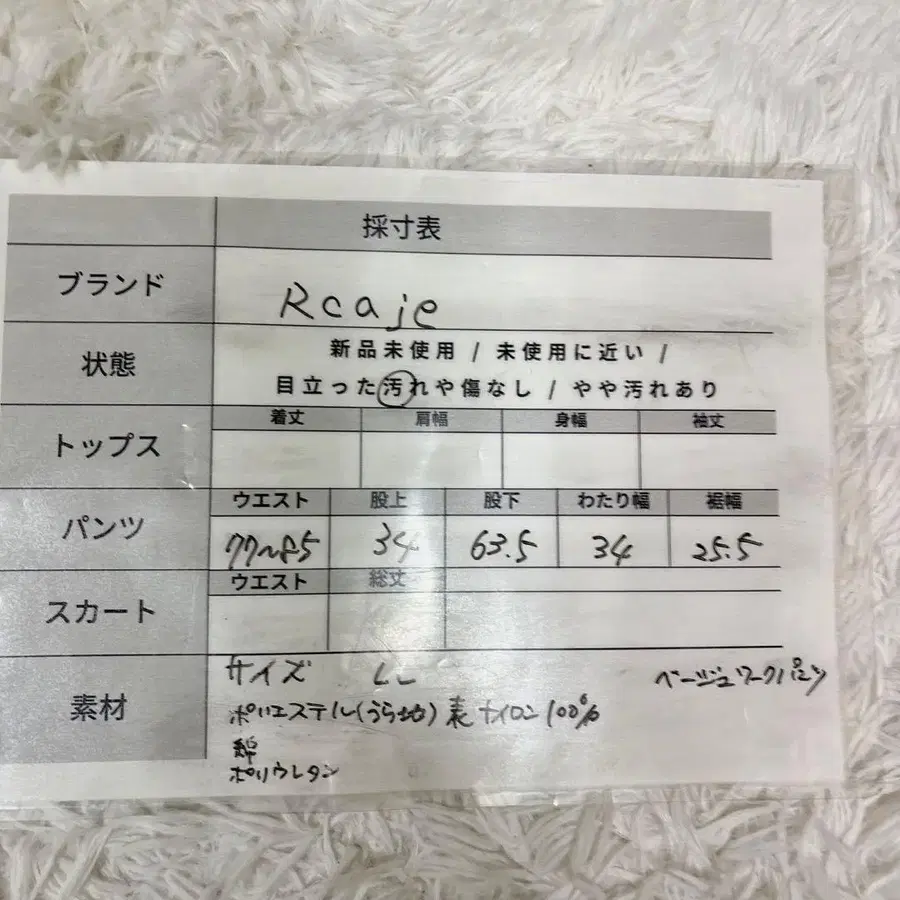 採寸表
ブランド Rcaje
状態 新品未使用 / 未使用に近い /
目立った汚れや傷なし / やや汚れあり
トップス 着丈 肩幅 身幅 袖丈
パンツ ウエスト 股上 股下 わたり幅 裾幅
77~85 34 63.5 34 25.5
スカート ウエスト 総丈
素材 サイズ LL ベージュワークパンツ
ポリエステル(うら地) 表 ナイロン 100%
綿
ポリウレタン